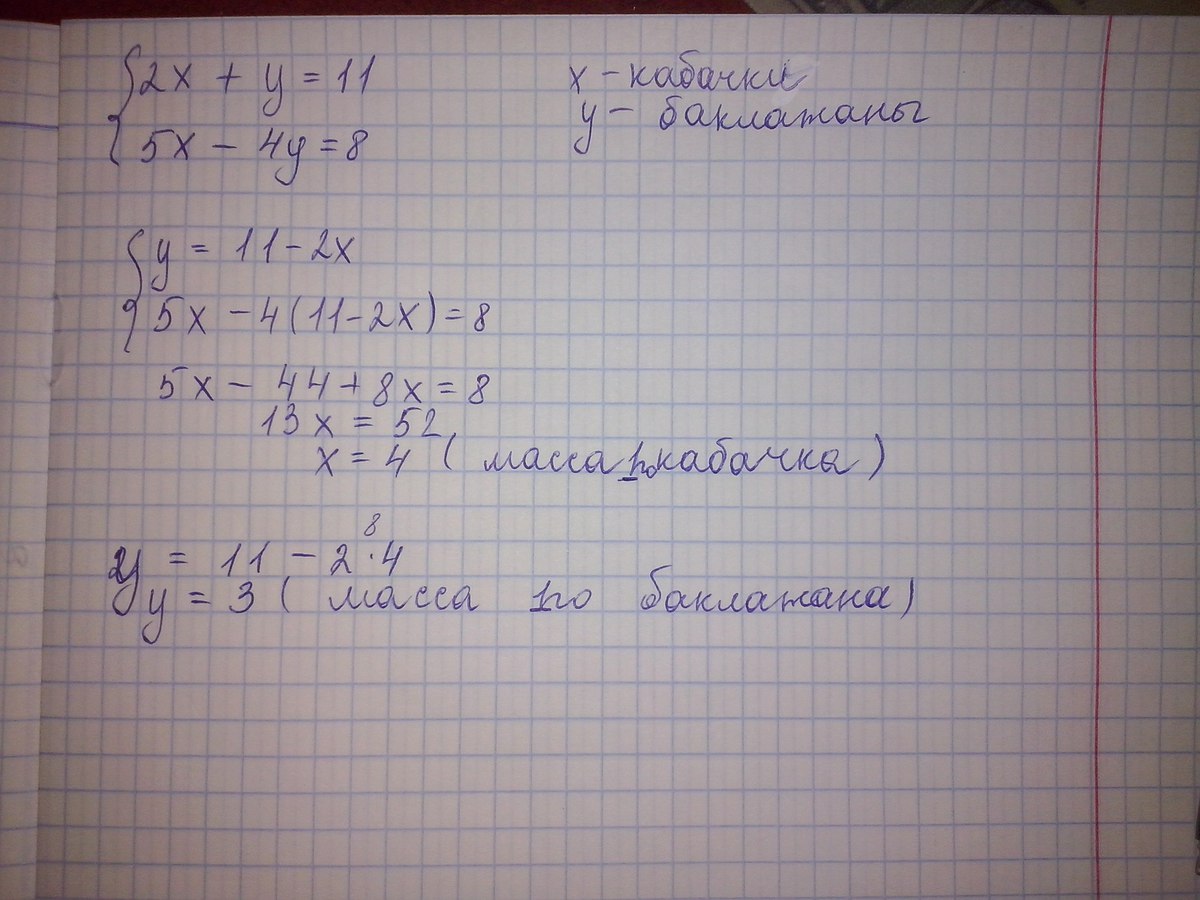 {2x + y = 11
x - кабачки
y - баклажаны
{5x - 4y = 8
{y = 11 - 2x
{5x - 4(11 - 2x) = 8
5x - 44 + 8x = 8
13x = 52
x = 4 (масса 1го кабачка)
8
y = 11 - 2 · 4
y = 3 (масса 1го баклажана)